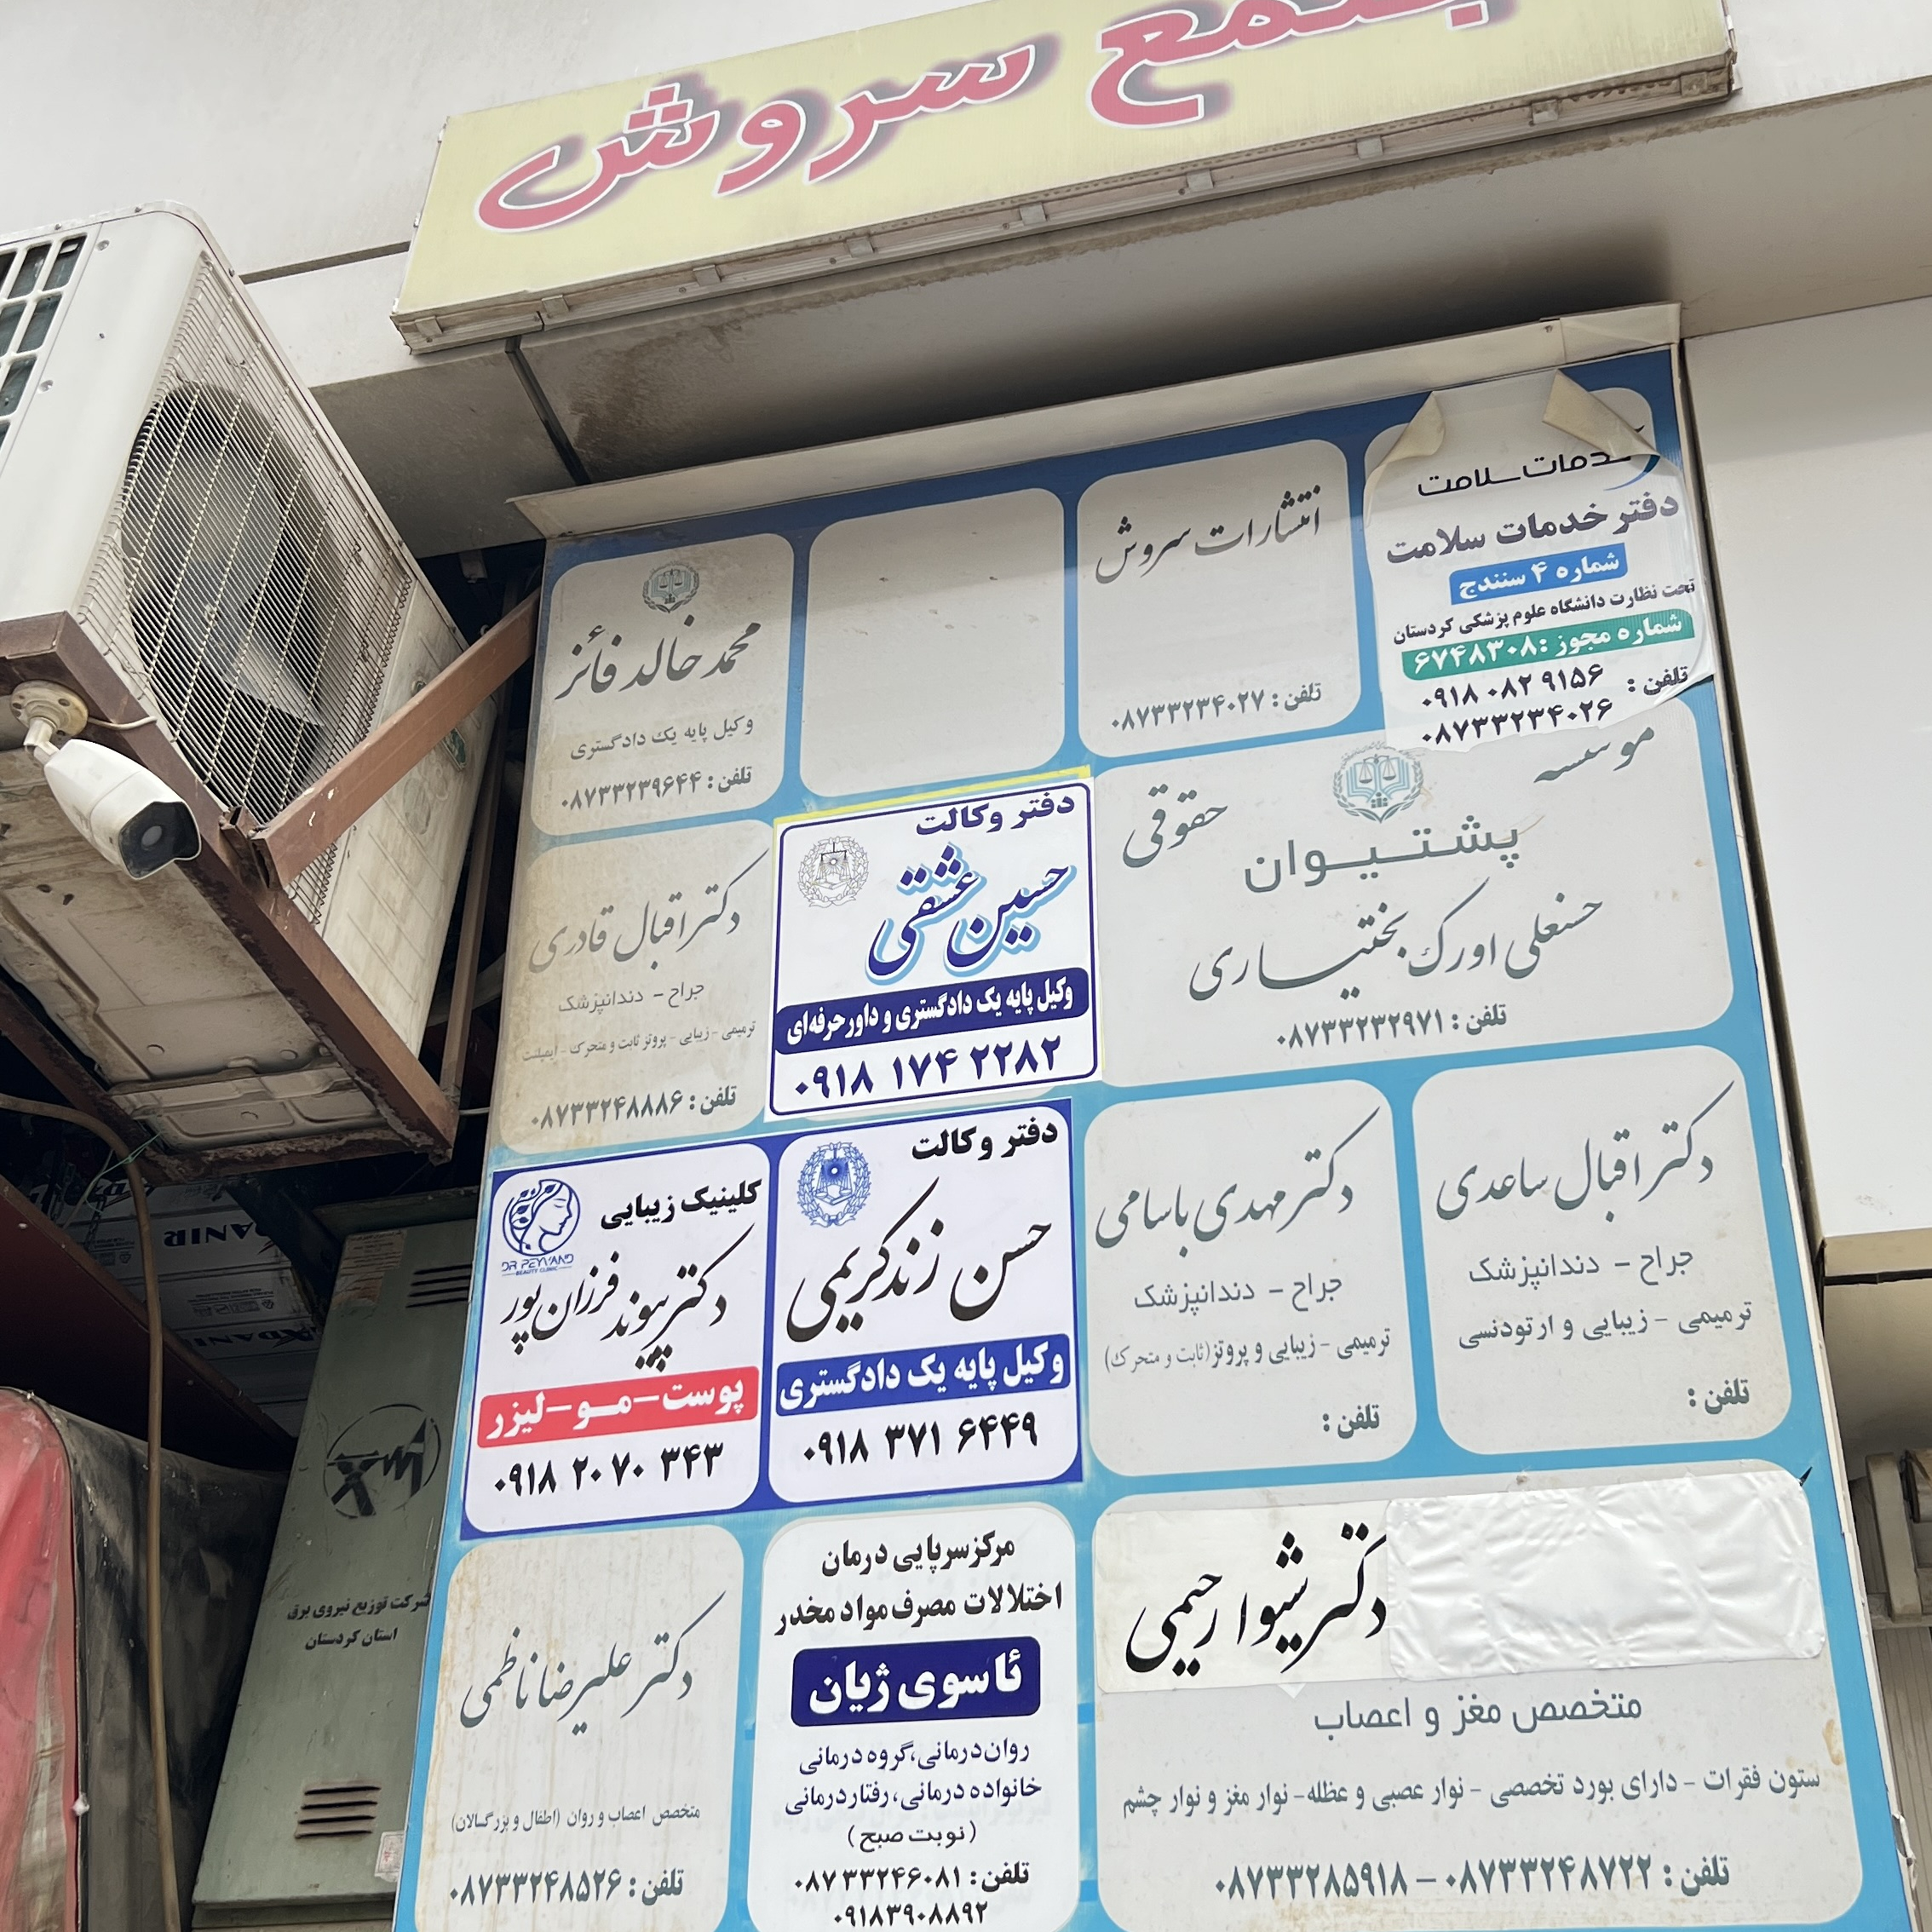 سروش
خدمات سلامت
دفتر خدمات سلامت
شماره ۴ سنندج
تحت نظارت دانشگاه علوم پزشکی کردستان
شماره مجوز: ۶۷۴۸۳۰۸
تلفن: ۰۹۱۸ ۰۸۲ ۹۱۵۶
۰۸۷۳۳۲۳۴۰۲۶
انتشارات سروش
تلفن: ۰۸۷۳۳۲۳۴۰۲۷
محمد خالد فائز
وکیل پایه یک دادگستری
تلفن: ۰۸۷۳۳۲۳۹۶۴۴
موسسه حقوقی
پشتیوان
حسنعلی اورک بختیاری
تلفن: ۰۸۷۳۳۲۳۲۹۷۱
دفتر وکالت
حسین عشقی
وکیل پایه یک دادگستری و داور حرفه‌ای
۰۹۱۸ ۱۷۴ ۲۲۸۲
دکتر اقبال قادری
جراح - دندانپزشک
ترمیمی - زیبایی - پروتز ثابت و متحرک - ایمپلنت
تلفن: ۰۸۷۳۳۲۴۸۸۸۶
دکتر اقبال ساعدی
جراح - دندانپزشک
ترمیمی - زیبایی و ارتودنسی
تلفن:
دکتر مهدی باسامی
جراح - دندانپزشک
ترمیمی - زیبایی و پروتز (ثابت و متحرک)
تلفن:
دفتر وکالت
حسن زندکریمی
وکیل پایه یک دادگستری
۰۹۱۸ ۳۷۱ ۶۴۴۹
کلینیک زیبایی
DR PEYVAND
BEAUTY CLINIC
دکتر پیوند فرزان پور
پوست-مو-لیزر
۰۹۱۸ ۲۰۷۰ ۳۴۳
دکتر شیوا رحیمی
متخصص مغز و اعصاب
ستون فقرات - دارای بورد تخصصی - نوار عصبی و عظله- نوار مغز و نوار چشم
تلفن: ۰۸۷۳۳۲۴۸۷۲۲ - ۰۸۷۳۳۲۸۵۹۱۸
مرکز سرپایی درمان
اختلالات مصرف مواد مخدر
ئاسوی ژیان
روان درمانی، گروه درمانی
خانواده درمانی، رفتار درمانی
(نوبت صبح)
تلفن: ۰۸۷۳۳۲۴۶۰۸۱
۰۹۱۸۳۹۰۸۸۹۲
دکتر علیرضا ناظمی
متخصص اعصاب و روان (اطفال و بزرگسالان)
تلفن: ۰۸۷۳۳۲۴۸۵۲۶
شرکت توزیع نیروی برق
استان کردستان